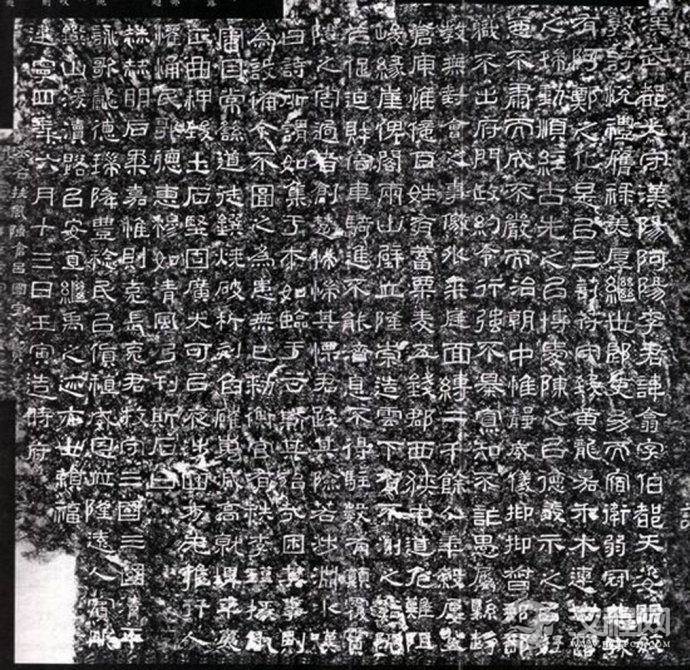 漢武都太守漢陽阿陽李君諱翕字伯都天姿明敏
敦詩悅禮膺祿美厚繼世郎吏幼而宿衛弱冠典城
有阿鄭之化是以三剖符守致黃龍嘉禾木連甘露
之瑞動順經古先之以博愛陳之以德義示之以好
惡不肅而成不嚴而治朝中惟靜威儀抑抑督郵部
職不出府門政約令行強不暴寡知不詐愚屬縣趨
教無對會之事徼外來庭面縛二千餘人年穀屢登
倉庾惟億百姓有蓄粟麥五錢郡西狹中道危難阻
峻緣崖俾閣兩山壁立隆崇造雲下有不測之谿阨
芒促迫財容車騎進不能濟息不得駐數有顛覆霣
隧之害過者創楚惴惴其慄君踐其險若涉淵冰嘆
曰詩所謂如集于木如臨于谷斯其殆哉困其事則
為設備今不圖之為患無已敕衡官有秩李瑾掾仇
審因常繇道徒鐉燒破析刻臽磪嵬減高就埤平夷
正曲柙致土石堅固廣大可以夜涉四方无雍行人
懽悀民歌德惠穆如清風乃刊斯石曰
赫赫明后柔嘉惟則克長克君牧守三國三國清平
詠歌懿德瑞降豐稔民以貨稙威恩並隆遠人賓服
鐉山浚瀆路以安直繼禹之迹亦世賴福
建寧四年六月十三日壬寅造時府
丞右扶風陳倉呂國字文寶